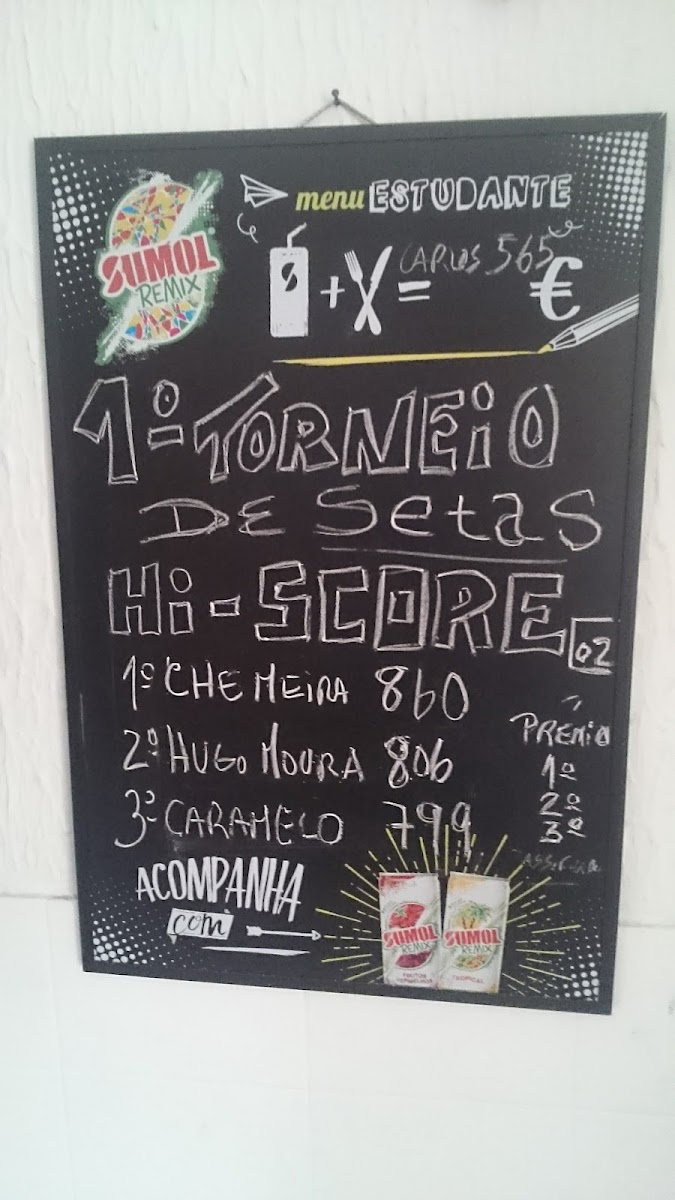 SUMOL
REMIX
menu ESTUDANTE
+ = €
CARLOS 565
1º TORNEIO
DE SetaS
Hi-SCORE 02
1º CHEMEIRA 860
2º HUGO MOURA 806
3º CARAMELO 799
PREMIO
1º
2º
3º
ACOMPANHA
com
SUMOL
REMIX
FRUTOS
VERMELHOS
SUMOL
REMIX
TROPICAL